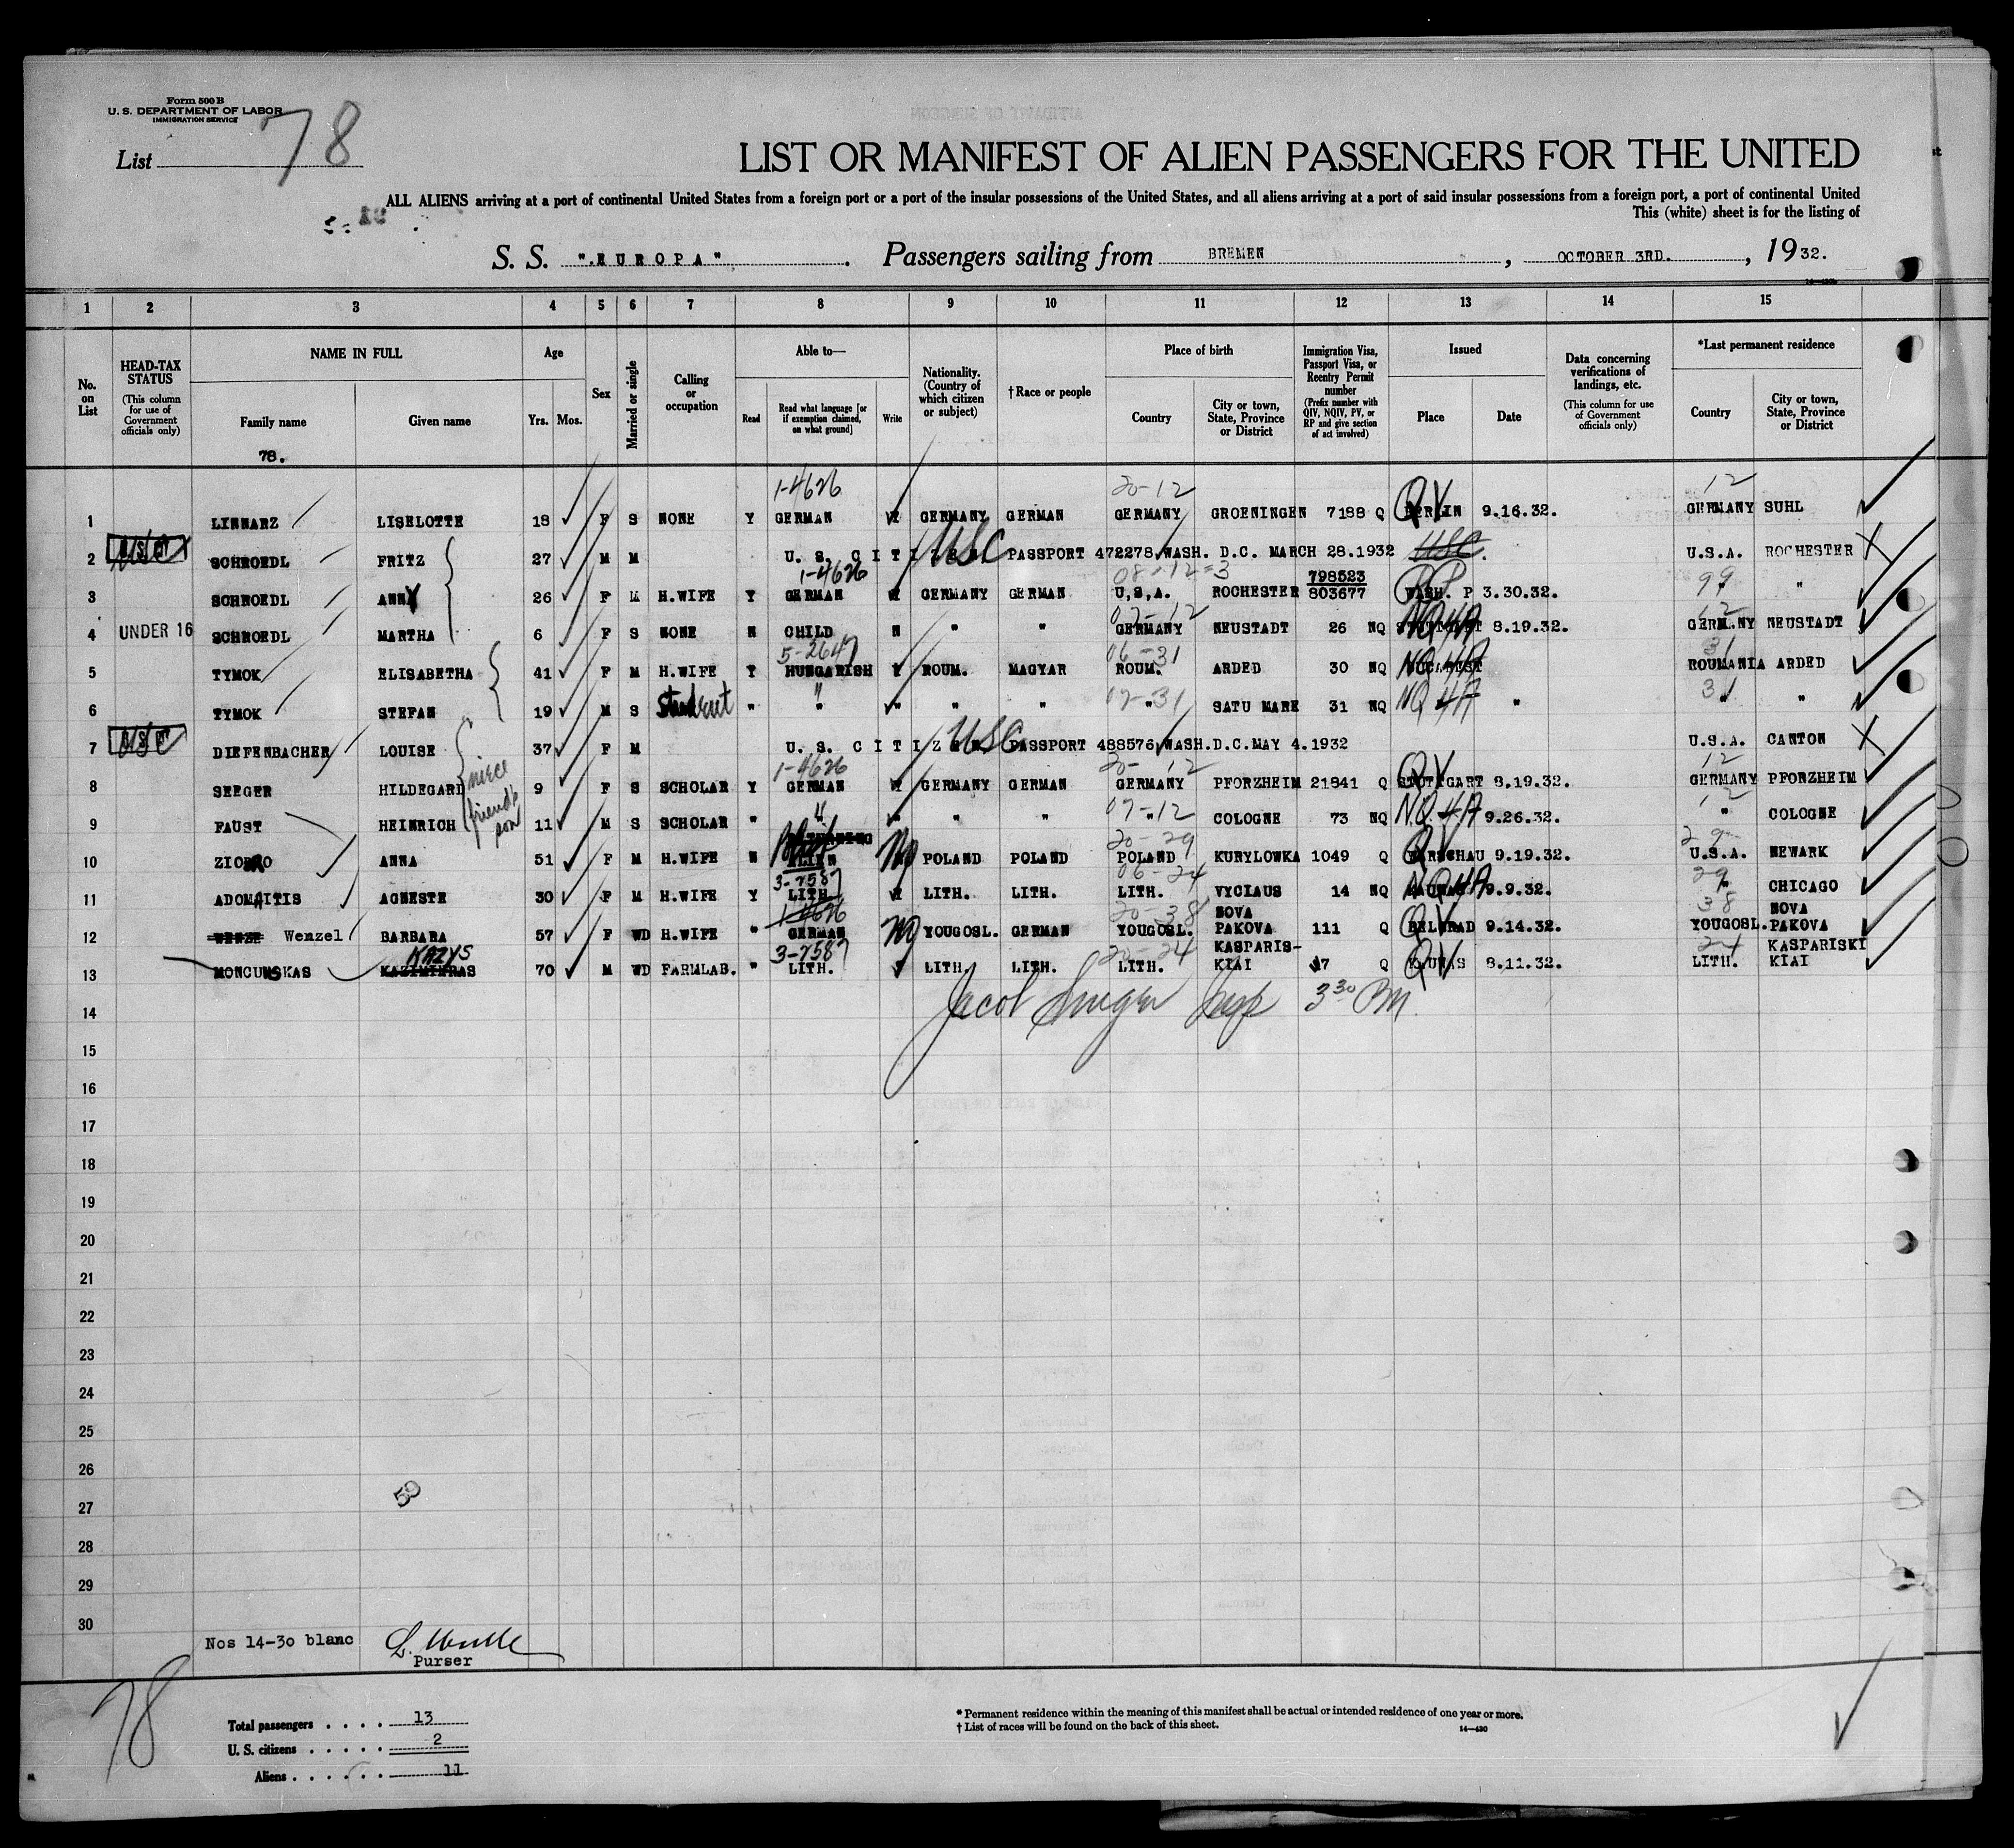 Form 500 B
U. S. DEPARTMENT OF LABOR
IMMIGRATION SERVICE
List 78
LIST OR MANIFEST OF ALIEN PASSENGERS FOR THE UNITED
ALL ALIENS arriving at a port of continental United States from a foreign port or a port of the insular possessions of the United States, and all aliens arriving at a port of said insular possessions from a foreign port, a port of continental United
This (white) sheet is for the listing of
S. S. "EUROPA" . Passengers sailing from BREMEN , OCTOBER 3RD. , 1932.
1 2 3 4 5 6 7 8 9 10 11 12 13 14 15
No. on List
HEAD-TAX STATUS
(This column for use of Government officials only)
NAME IN FULL
Family name
Given name
78.
Age
Yrs. Mos.
Sex
Married or single
Calling or occupation
Able to—
Read
Read what language [or if exemption claimed, on what ground]
Write
Nationality. (Country of which citizen or subject)
† Race or people
Place of birth
Country
City or town, State, Province or District
Immigration Visa, Passport Visa, or Reentry Permit number
(Prefix number with QIV, NQIV, PV, or RP and give section of act involved)
Issued
Place
Date
Data concerning verifications of landings, etc.
(This column for use of Government officials only)
*Last permanent residence
Country
City or town, State, Province or District
1-4626 20-12 12
1 LINNARZ LISELOTTE 18 F S NONE Y GERMAN Y GERMANY GERMAN GERMANY GROENINGEN 7188 Q BERLIN QV 9.16.32. GERMANY SUHL
2 USC SCHROEDL FRITZ 27 M M U. S. CITIZEN USC PASSPORT 472278 WASH. D.C. MARCH 28.1932 USC. U.S.A. ROCHESTER
1-4626 08-12=3 798523 99
3 SCHROEDL ANNY 26 F M H.WIFE Y GERMAN Y GERMANY GERMAN U,S,A. ROCHESTER 803677 WASH. P RP 3.30.32. " "
07-12 12
4 UNDER 16 SCHROEDL MARTHA 6 F S NONE N CHILD N " " GERMANY NEUSTADT 26 NQ NQ4A 8.19.32. GERMANY NEUSTADT
5-2647 06-31 31
5 TYMOK ELISABETHA 41 F M H.WIFE Y HUNGARISH Y ROUM. MAGYAR ROUM. ARDED 30 NQ NQ4A ROUMANIA ARDED
07-31 31
6 TYMOK STEFAN 19 M S Student " " " " " " SATU MARE 31 NQ NQ 4A " " "
7 USC DIEFENBACHER LOUISE 37 F M U. S. CITIZEN USC PASSPORT 488576 WASH.D.C.MAY 4.1932 U.S.A. CANTON
1-4626 20-12 12
8 SEEGER HILDEGARD niece 9 F S SCHOLAR Y GERMAN Y GERMANY GERMAN GERMANY PFORZHEIM 21841 Q STUTTGART QV 8.19.32. GERMANY PFORZHEIM
07-12 12
9 FAUST HEINRICH friend's son 11 M S SCHOLAR " " " " " " COLOGNE 73 NQ N.Q.4A 9.26.32. " COLOGNE
20-29 29
10 ZIOBRO ANNA 51 F M H.WIFE N No POLAND POLAND POLAND KURYLOWKA 1049 Q WARSCHAU QV 9.19.32. U.S.A. NEWARK
3-2587 06-24 29
11 ADOMAITIS AGNESTE 30 F M H.WIFE Y LITH. Y LITH. LITH. LITH. VYCIAUS 14 NQ KAUNAS NQ4A 9.9.32. " CHICAGO
1-4626 20-38 NOVA 38 NOVA
12 WENZE Wenzel BARBARA 57 F WD H.WIFE " GERMAN No YOUGOSL. GERMAN YOUGOSL. PAKOVA 111 Q BELGRAD QV 9.14.32. YOUGOSL. PAKOVA
KAZYS 3-2587 20-24 KASPARIS- 24 KASPARISKI
13 MONCUNSKAS KAZIMIERAS 70 M WD FARMLAB. " LITH. Y LITH. LITH. LITH. KIAI 17 Q KAUNAS QV 8.11.32. LITH. KIAI
14 3 30 PM
15
16
17
18
19
20
21
22
23
24
25
26
27
59
28
29
30
Nos 14-30 blanc
Purser
78
Total passengers . . . . 13
U. S. citizens . . . . . 2
Aliens . . . . . . 11
* Permanent residence within the meaning of this manifest shall be actual or intended residence of one year or more.
† List of races will be found on the back of this sheet.
14—430